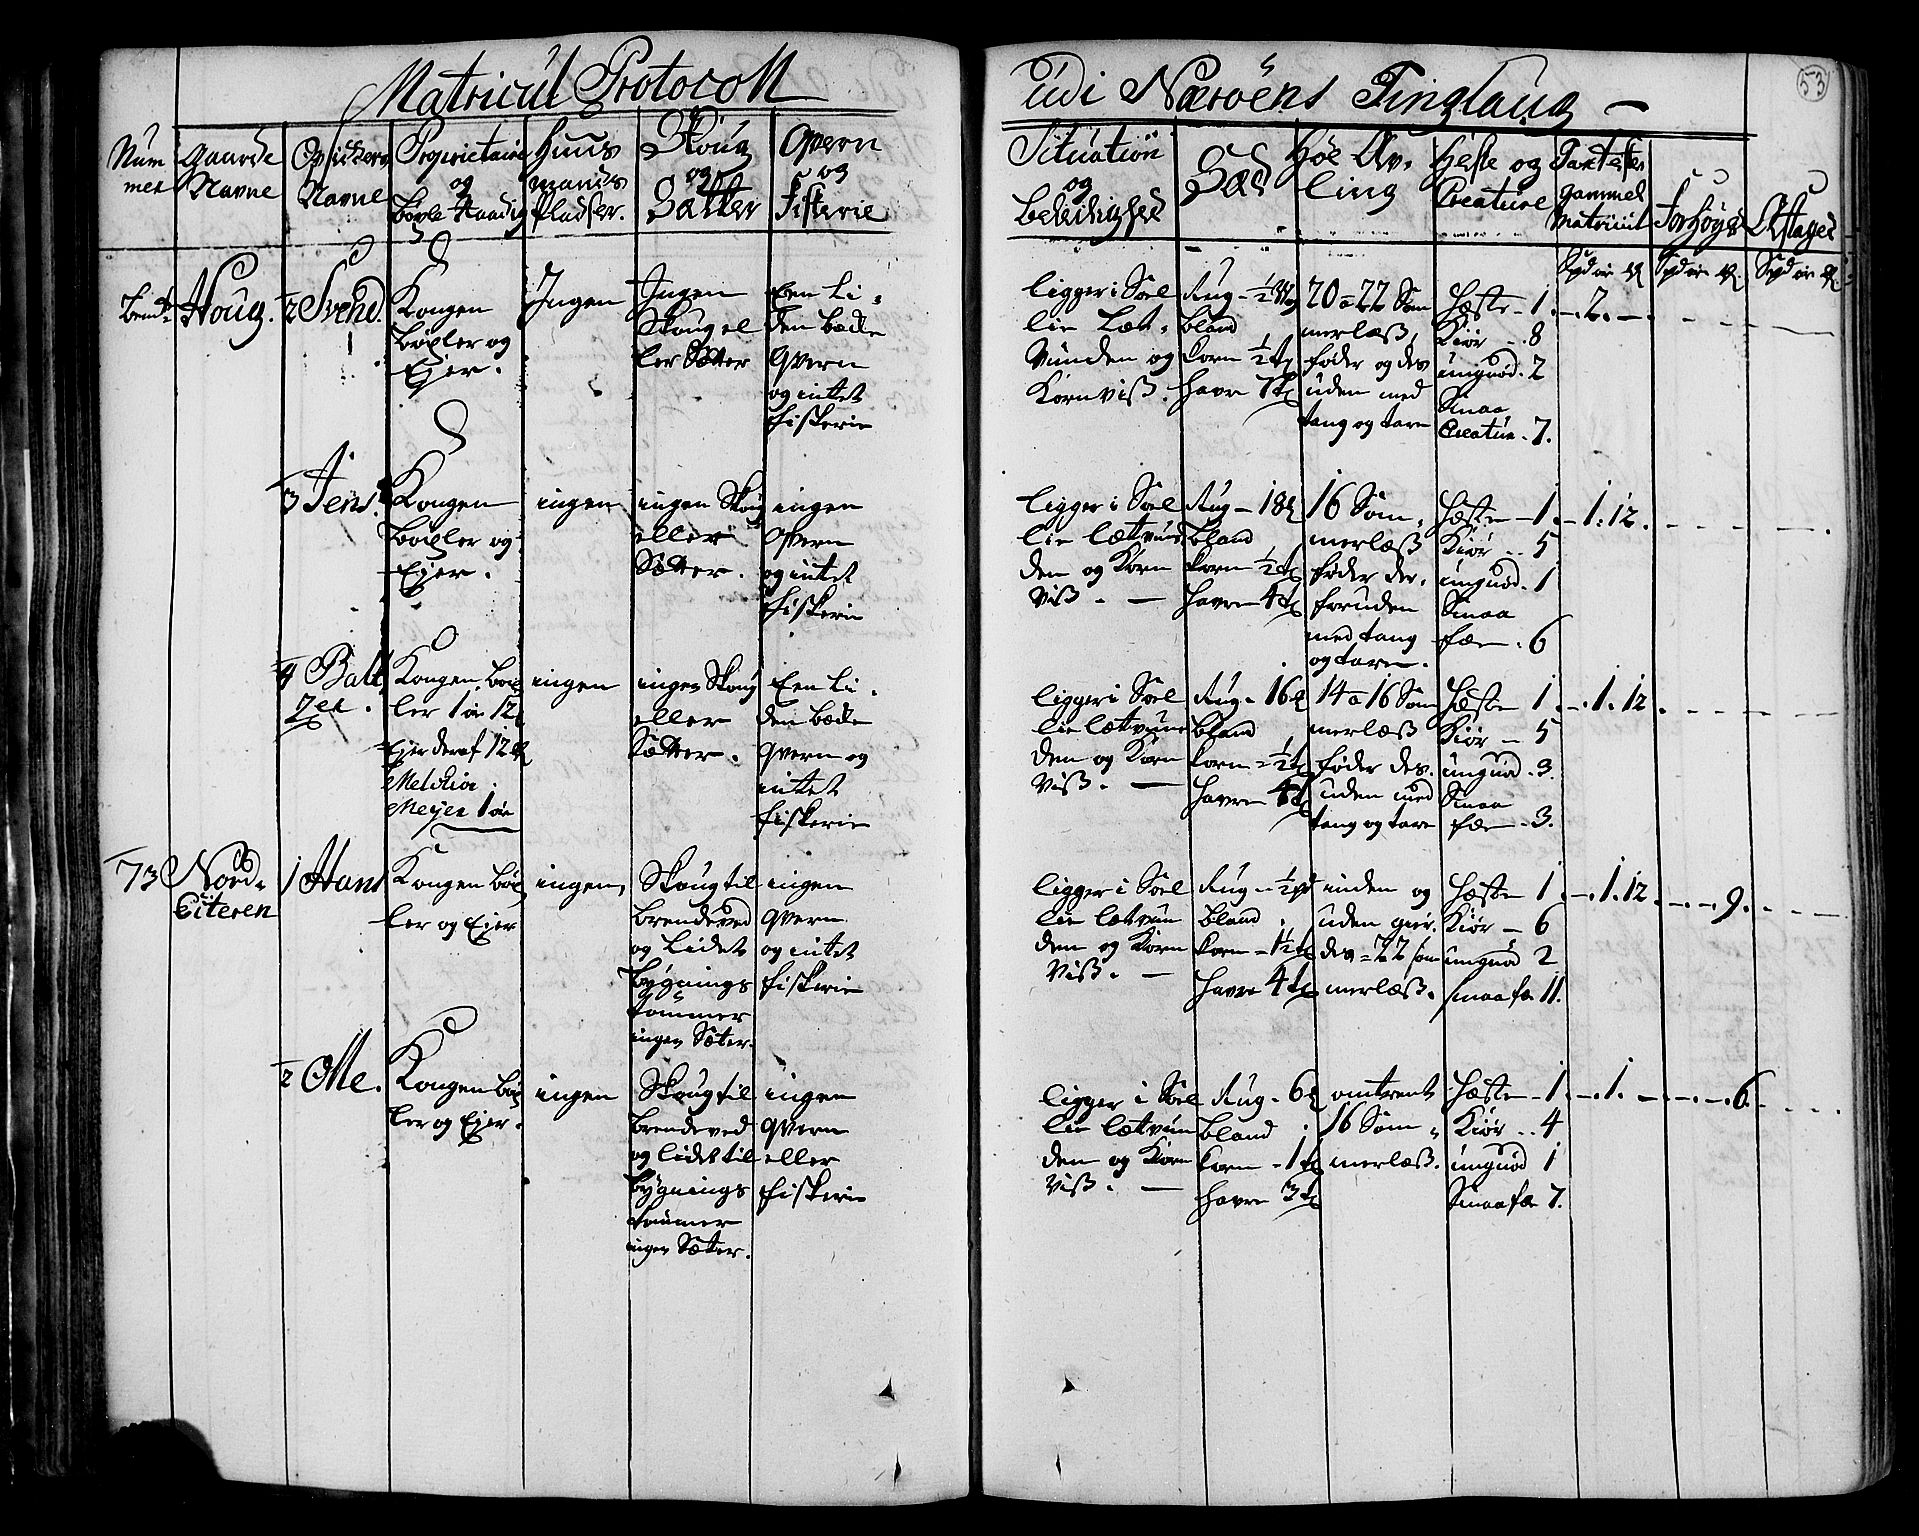 Matricul Protocoll
udi Nærøens Tinglaug
53
Num
mer
Gaarde
Navne
Opsidderes
Navne
Proprietairer
og
Bøxle Raadig
Huus
mands
Pladser.
Skoug
og
Sætter
Qvern
og
Fiskerie
Situation
og
Beleilighed
Sæd
Høe Av,
ling
Heste og
Creature
Taxt efter
gammel
Matricul
Forhøyes
Aftages
Houg.
2 Svend
Kongen
bøxler og
Ejer.
Ingen
Ingen
Skoug el
ler Sæter
Een Li,
den bæcke
Qvern
og intet
fiskerie
ligger i Soel
lie Let,
vunden og
Kornviss.
Rug - 1/2
bland
korn 1/2 t
havre 7 t
20 a 22 Som
merlæss
føder og des
uden med
tang og tare
Hæste - 1.
Kiør - 8
ungnød. 2
Smaa
Creature - 7.
- 2. -
3 Jens.
Kongen
bøxler og
Ejer.
ingen
ingen Skoug
eller
Sætter.
ingen
Qvern
og intet
fiskerie
ligger i Soel
lie lætvun
den og Korn
viss. -
Rug - 18
bland
korn 1/2 t
havre 4 t
16 Som,
merlæss
føder der,
foruden
med tang
og tare.
Hæste - 1.
Kiør - 5
ungnød. 1
Smaa
fæe. 6
- 1. 12.
4 Balt
zer.
Kongen bøx
ler 1 ør 12
Ejer deraf 12
Melchior
Meyer 1 ør
ingen
ingen Skoug
eller
Sætter.
Een Li,
den bæcke
qvern og
intet
fiskerie
ligger i Soel
lie lætvun
den og Korn
viss. -
Rug - 16
bland
korn - 1/2 t
havre 4 t
14 a 16 Som
merlæss
føder des,
uden med
tang og tare
Hæste 1
Kiør - 5
ungnød. 3.
Smaa
fæe - 3.
- 1. 12
73 Nord-
Eiteren
1 Hans
Kongen bøx
ler og Ejer
ingen,
Skoug til
brendeved
og lidet
bygnings
tømmer
ingen Sæter.
ingen
qvern
og intet
fiskerie
ligger i Soel
lie lætvun
den og Korn
viss. -
Rug - 1/2
bland
korn - 1 1/2 t
havre 4 t
inden og
uden gier,
des - 22 som
merlæss.
Hæste 1
Kiør - 6
ungnød 2
smaa fæ 11.
- 1. 12. - - 9.
2 Ole.
Kongen bøx
ler og Ejer.
ingen
Skoug til
brendeved
og lidet til
bygnings
tømmer
ingen Sæter.
ingen
qvern
eller
fiskerie
ligger i Soel
lie lætvun
den og Korn
viss. -
Rug - 6
bland
korn - 1 t
havre 3 t
omtrent
16 Som,
merlæss.
Hæste - 1
Kiør - 4
ungnød 1
Smaa fæ 7.
- 1. - - - 6.